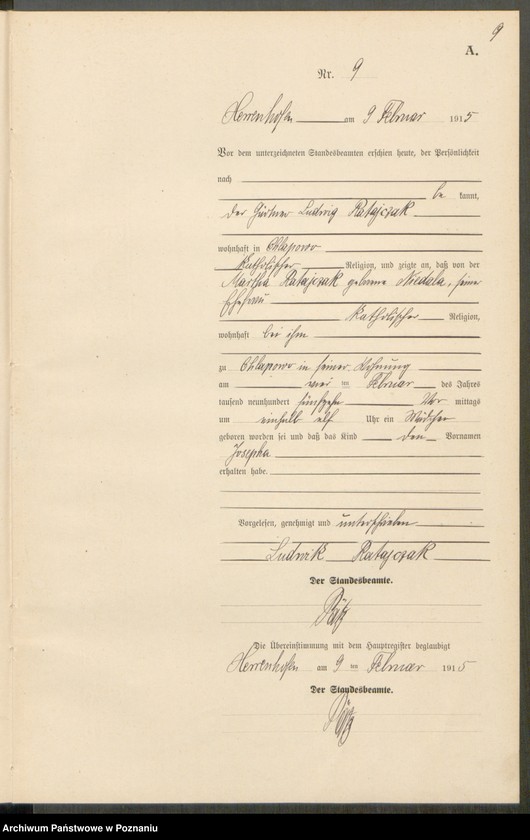 9
A.
Nr. 9
Herrenhofen am 9 Februar 1915
Vor dem unterzeichneten Standesbeamten erschien heute, der Persönlichkeit
nach
be kannt,
der Gärtner Ludwig Ratajczak
wohnhaft in Chlapowo
Katholischer Religion, und zeigte an, daß von der
Martha Ratajczak geborene Niedala, seiner
Ehefrau
Katholischer Religion,
wohnhaft bei ihm
zu Chlapowo in seiner Wohnung
am vier ten Februar des Jahres
tausend neunhundert fünfzehn Vor mittags
um einhalb elf Uhr ein Mädchen
geboren worden sei und daß das Kind den Vornamen
Josepha
erhalten habe.
Vorgelesen, genehmigt und unterschrieben
Ludwik Ratajczak
Der Standesbeamte.
Die Übereinstimmung mit dem Hauptregister beglaubigt
Herrenhofen am 9 ten Februar 1915
Der Standesbeamte.
Archiwum Państwowe w Poznaniu